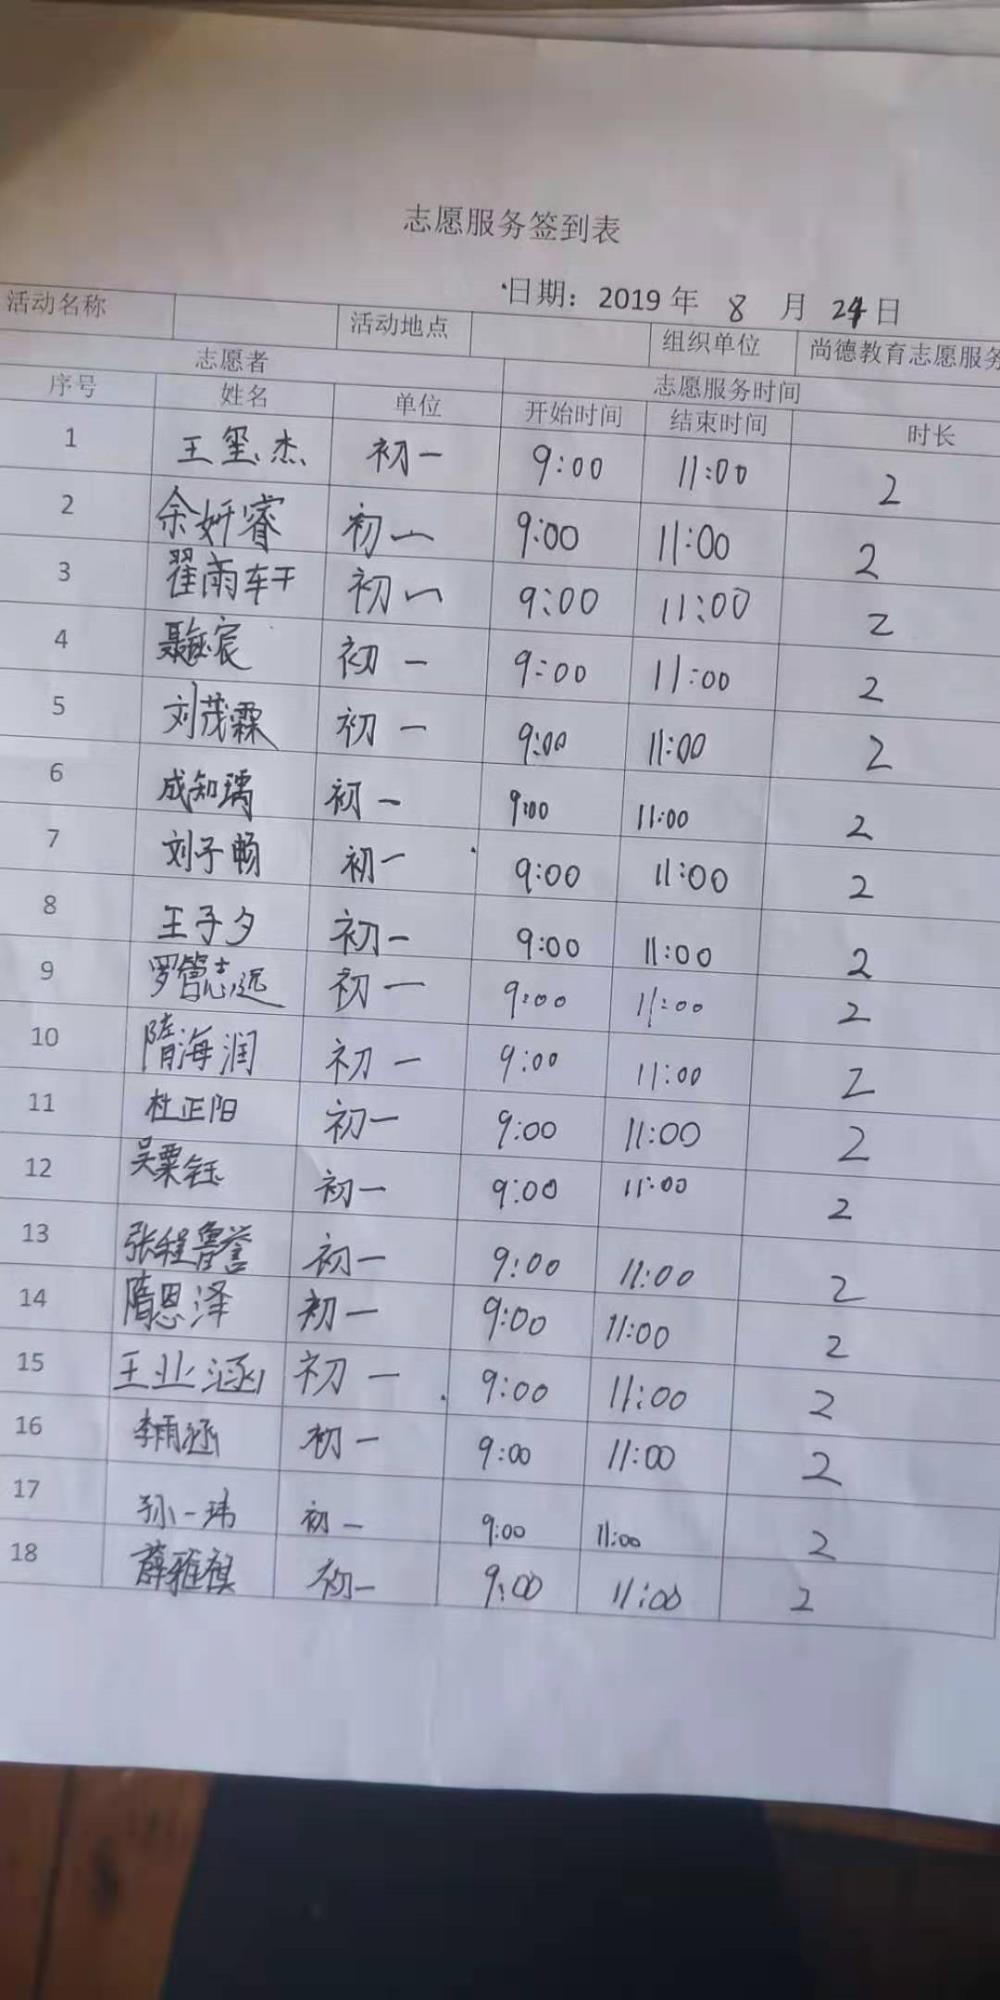 志愿服务签到表
日期：2019 年 8 月 24 日
活动名称 活动地点 组织单位 尚德教育志愿服务
志愿者 志愿服务时间
序号 姓名 单位 开始时间 结束时间 时长
1 王玺杰 初一 9:00 11:00 2
2 余妍睿 初一 9:00 11:00 2
3 翟雨轩 初一 9:00 11:00 2
4 初一 9:00 11:00 2
5 刘茂霖 初一 9:00 11:00 2
6 成知瑀 初一 9:00 11:00 2
7 刘子畅 初一 9:00 11:00 2
8 王子夕 初一 9:00 11:00 2
9 罗管志远 初一 9:00 11:00 2
10 隋海润 初一 9:00 11:00 2
11 杜正阳 初一 9:00 11:00 2
12 吴粟钰 初一 9:00 11:00 2
13 张程鲁誉 初一 9:00 11:00 2
14 隋恩泽 初一 9:00 11:00 2
15 王业涵 初一 9:00 11:00 2
16 李雨涵 初一 9:00 11:00 2
17 孙一玮 初一 9:00 11:00 2
18 薛雅祺 初一 9:00 11:00 2